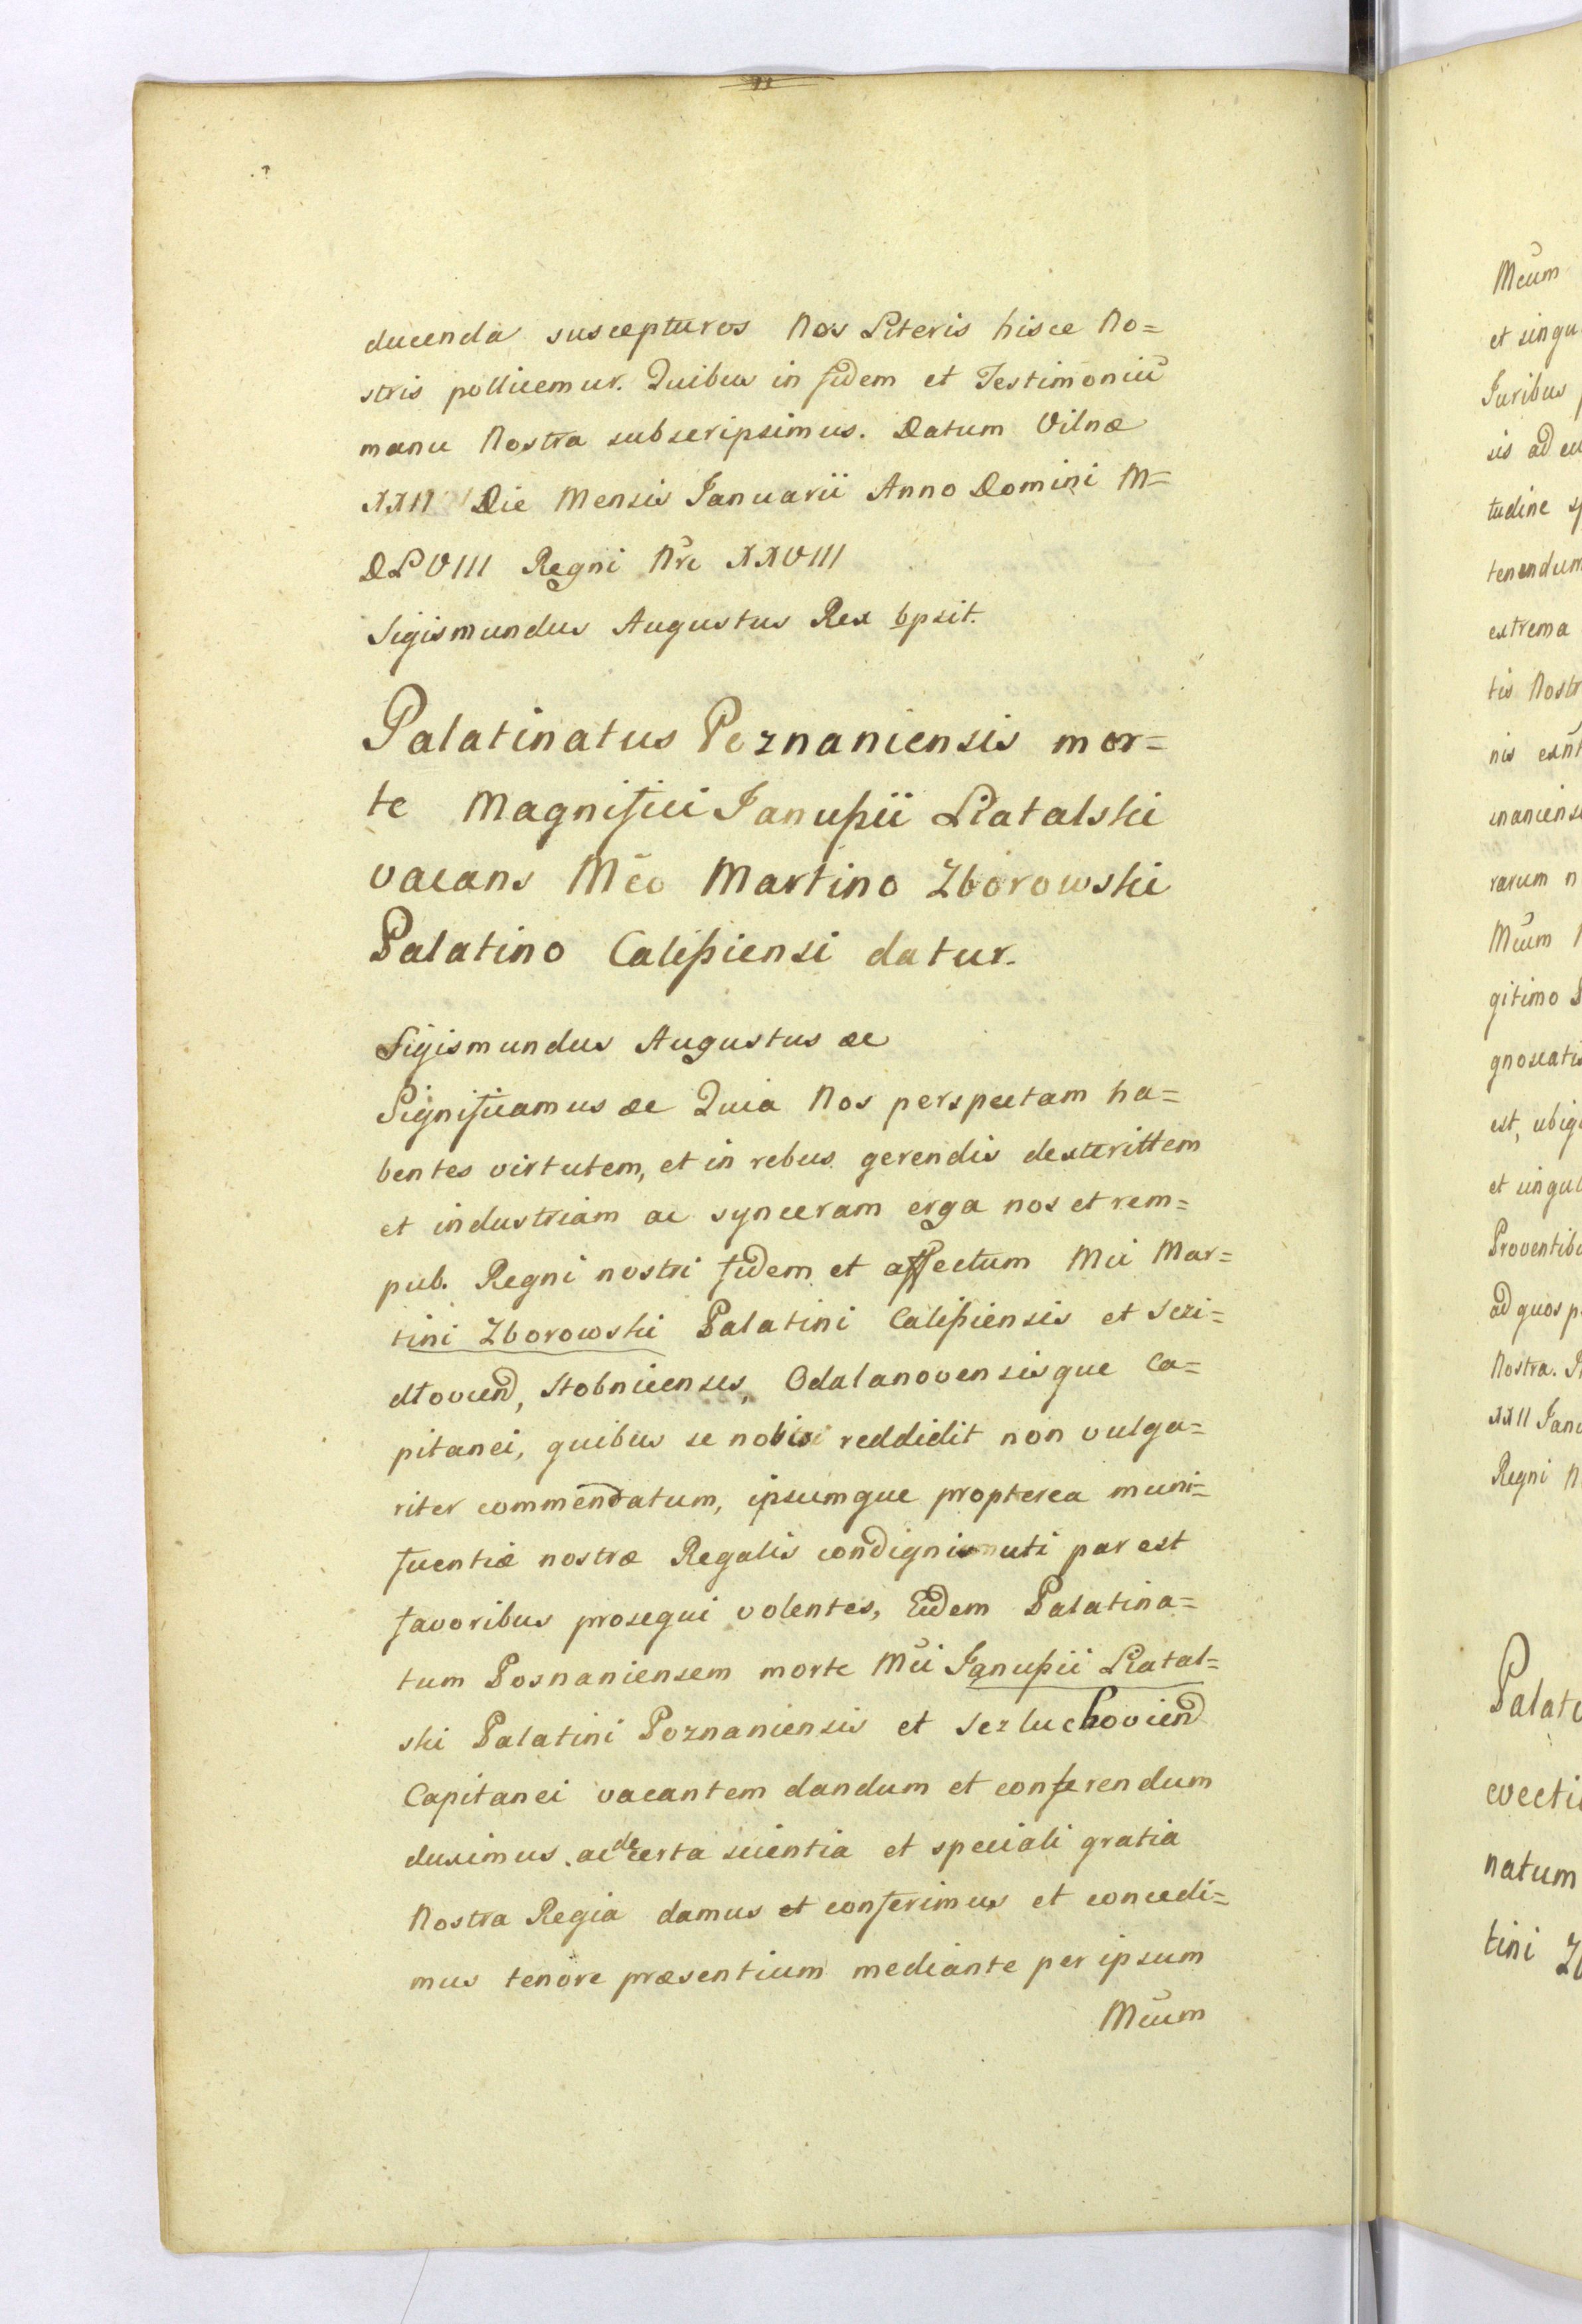 ducenda suscepturos Nos Literis hisce No=
stris pollicemur. Quibus in fidem et Testimoniũ
manu Nostra subscripsimus. Datum Vilnæ
XXII Die Mensis Januarii Anno Domini M=
DLVIII Regni Nri XXVIII
Sigismundus Augustus Rex
Palatinatus Poznaniensis mor=
te Magnifici Janußii Latalski
vacans Mco Martino Zborowski
Palatino Calißiensi datur.
Sigismundus Augustus &c
Significamus &c Quia Nos perspectam ha=
bentes virtutem, et in rebus gerendis dexterittem
et industriam ac synceram erga nos et rem=
pub. Regni nostri fidem et affectum Mci Mar=
tini Zborowski Palatini Calißiensis et
Stobnicenses, Odalanovensisque Ca=
pitanei, quibus se nobis reddidit non vulga=
riter commendatum, ipsumque propterea muni=
ficentiæ nostræ Regalis condignis uti par est
favoribus prosequi volentes, Eidem Palatina=
tum Posnaniensem morte Mci Janußii Latal=
ski Palatini Poznaniensis et
Capitanei vacantem dandum et conferendum
duximus. ac de certa scientia et speciali gratia
Nostra Regia damus et conferimus et concedi=
mus tenore præsentium mediante per ipsum
Mcum
Mcum
et singu
Juribus
sis ad eu
tudine sp
tenendum
extrema
tis Nostr
nis
rarum n
Mcum
gitimo
gnoscatis
est, ubiq
et singul
Proventib
ad quos p
Nostra.
XXII Janu
Regni N
Palati
evecti
natum
tini Z